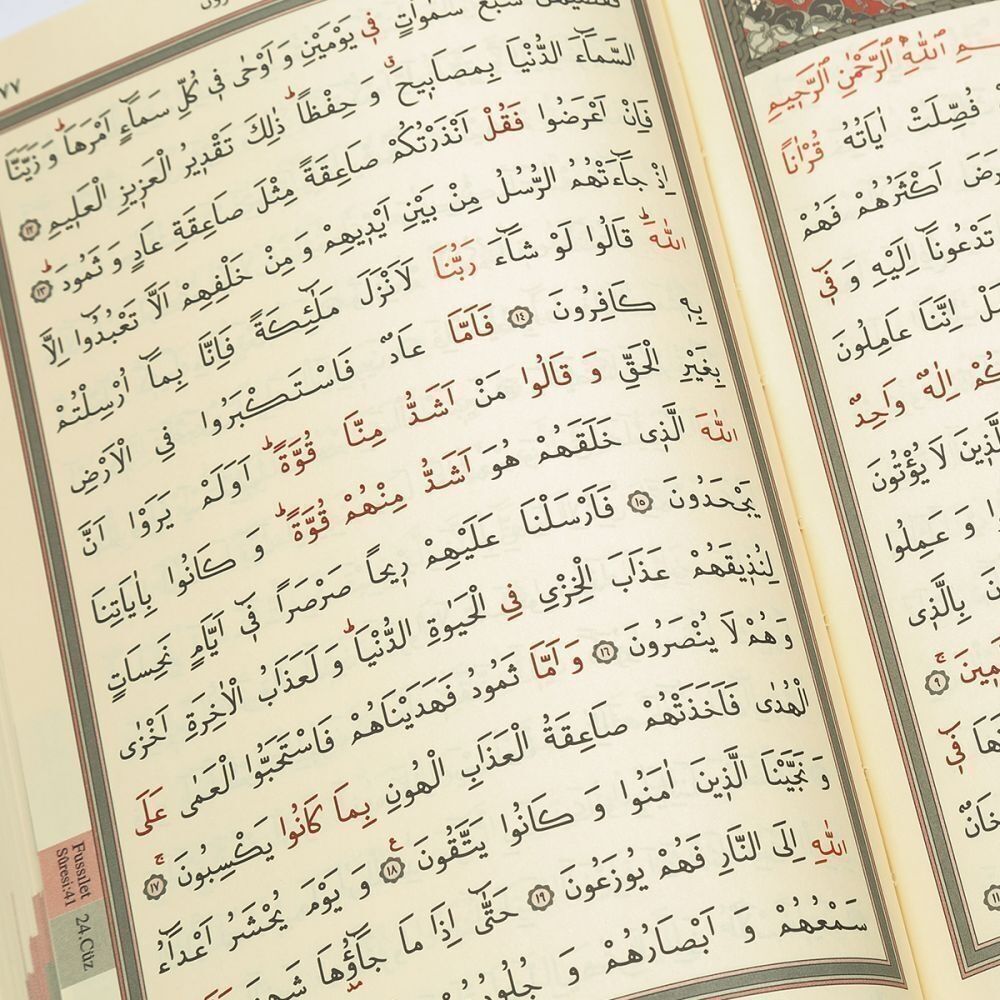 سَمٰوَاتٍ فٖي يَوْمَيْنِ وَ اَوْحٰى فٖي كُلِّ سَمَٓاءٍ اَمْرَهَاؕ وَ زَيَّنَّا
السَّمَٓاءَ الدُّنْيَا بِمَصَابٖيحَۗ وَ حِفْظاًؕ ذٰلِكَ تَقْدٖيرُ الْعَزٖيزِ الْعَلٖيمِ ﴿١٢﴾
فَاِنْ اَعْرَضُوا فَقُلْ اَنْذَرْتُكُمْ صَاعِقَةً مِثْلَ صَاعِقَةِ عَادٍ وَ ثَمُودَؕ ﴿١٣﴾
اِذْ جَٓاءَتْهُمُ الرُّسُلُ مِنْ بَيْنِ اَيْدٖيهِمْ وَ مِنْ خَلْفِهِمْ اَلَّا تَعْبُدُٓوا اِلَّا
اللّٰهَؕ قَالُوا لَوْ شَٓاءَ رَبُّنَا لَاَنْزَلَ مَلٰٓئِكَةً فَاِنَّا بِمَٓا اُرْسِلْتُمْ
بِهٖ كَافِرُونَ ﴿١٤﴾ فَاَمَّا عَادٌ فَاسْتَكْبَرُوا فِي الْاَرْضِ
بِغَيْرِ الْحَقِّ وَ قَالُوا مَنْ اَشَدُّ مِنَّا قُوَّةًؕ اَوَلَمْ يَرَوْا اَنَّ
اللّٰهَ الَّذٖي خَلَقَهُمْ هُوَ اَشَدُّ مِنْهُمْ قُوَّةًؕ وَ كَانُوا بِاٰيَاتِنَا
يَجْحَدُونَ ﴿١٥﴾ فَاَرْسَلْنَا عَلَيْهِمْ رٖيحاً صَرْصَراً فٖٓي اَيَّامٍ نَحِسَاتٍ
لِنُذٖيقَهُمْ عَذَابَ الْخِزْيِ فِي الْحَيٰوةِ الدُّنْيَاؕ وَ لَعَذَابُ الْاٰخِرَةِ اَخْزٰى
وَ هُمْ لَا يُنْصَرُونَ ﴿١٦﴾ وَ اَمَّا ثَمُودُ فَهَدَيْنَاهُمْ فَاسْتَحَبُّوا الْعَمٰى عَلَى
الْهُدٰى فَاَخَذَتْهُمْ صَاعِقَةُ الْعَذَابِ الْهُونِ بِمَا كَانُوا يَكْسِبُونَۚ ﴿١٧﴾
وَ نَجَّيْنَا الَّذٖينَ اٰمَنُوا وَ كَانُوا يَتَّقُونَ ﴿١٨﴾ وَ يَوْمَ يُحْشَرُ اَعْدَٓاءُ
اللّٰهِ اِلَى النَّارِ فَهُمْ يُوزَعُونَ ﴿١٩﴾ حَتّٰٓى اِذَا مَا جَٓاؤُ۫هَا
سَمْعُهُمْ وَ اَبْصَارُهُمْ وَ
Fussılet
Sûresi:41
24.Cüz
اللّٰهِ الرَّحْمٰنِ الرَّحٖيمِ
فُصِّلَتْ اٰيَاتُهُ قُرْاٰناً
اَكْثَرُهُمْ فَهُمْ
تَدْعُونَٓا اِلَيْهِ وَ فٖٓي
اِنَّنَا عَامِلُونَ
اِلٰهٌ وَاحِدٌ
لَا يُؤْتُونَ
وَ عَمِلُوا
بِالَّذٖي
﴿٩﴾
فٖٓي